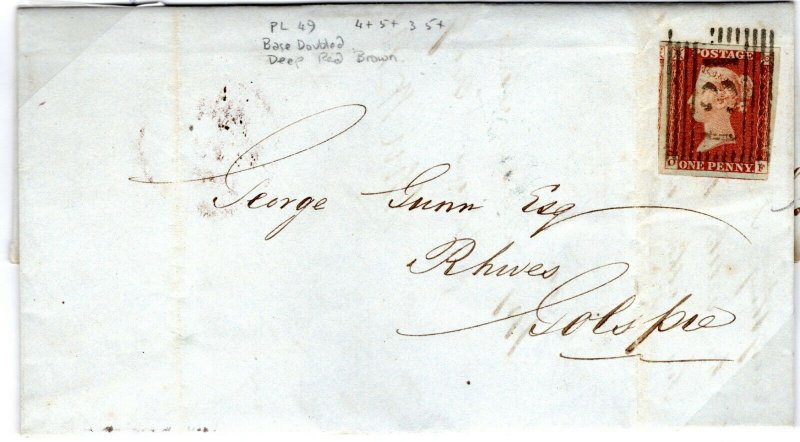 PL 49 4+ 5+ 3 5+
Base Doubled
Deep Red Brown
George Gunn Esq
Rhives
Golspie
POSTAGE
O ONE PENNY F